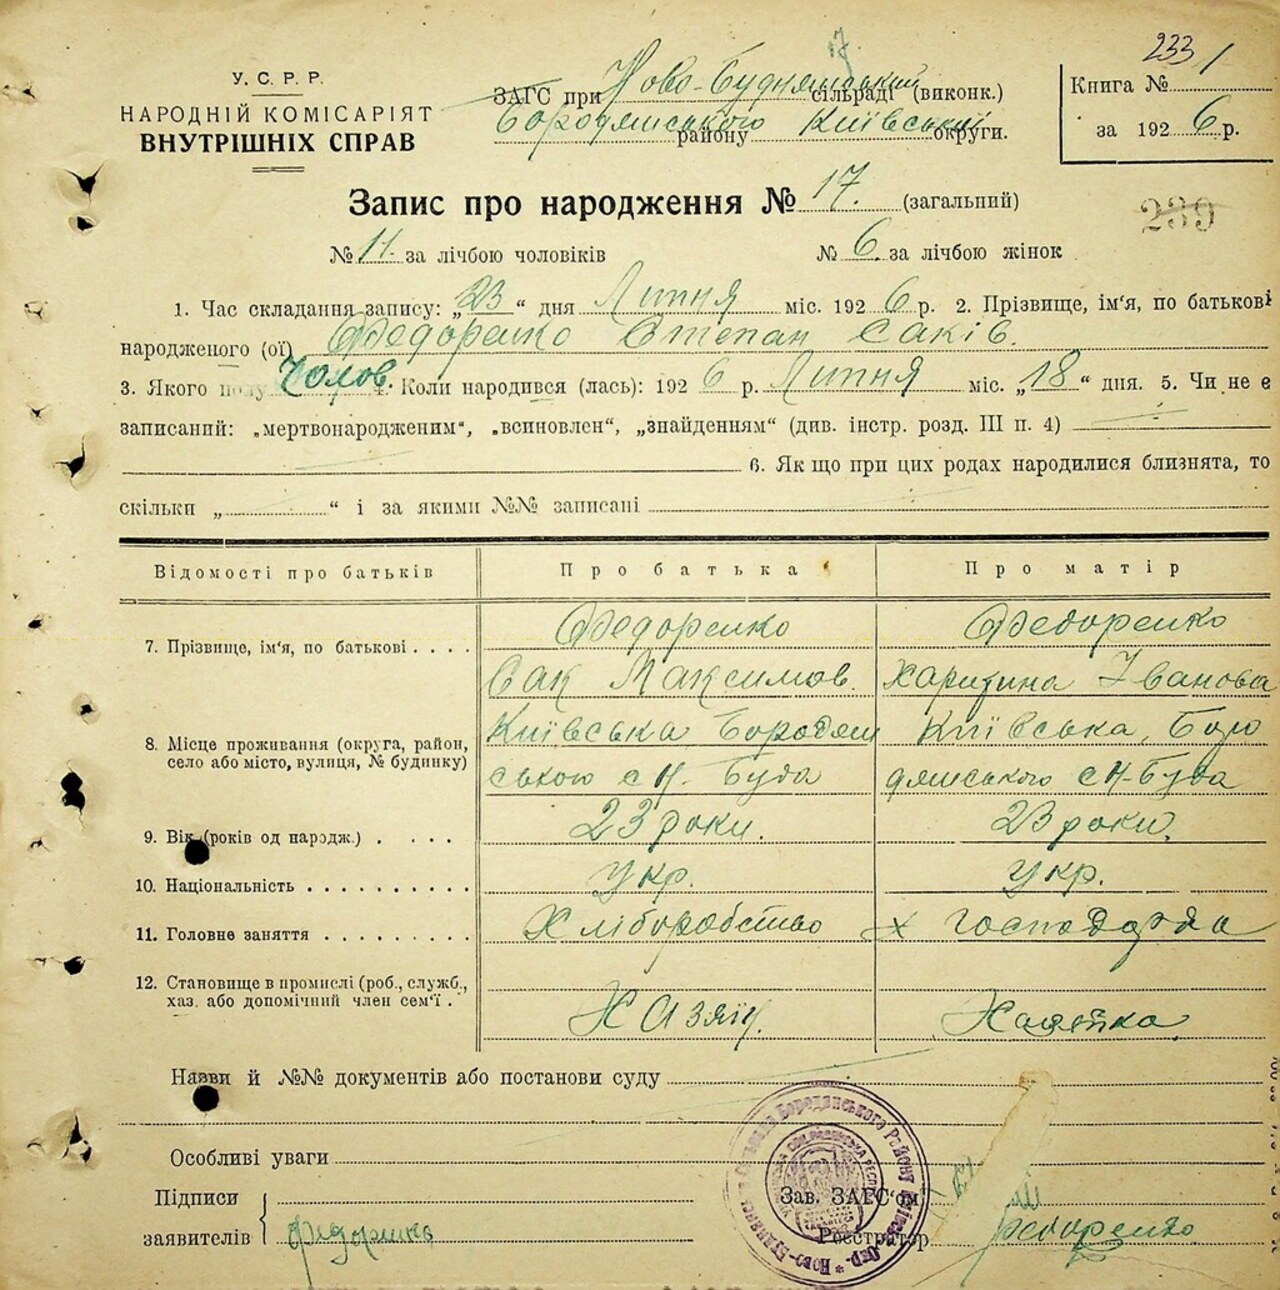 233
У. С. Р. Р.
НАРОДНІЙ КОМІСАРІЯТ
ВНУТРІШНІХ СПРАВ
ЗАГС при Ново-Буднянський сільраді (виконк.)
Бородянського району Київський округи.
Книга №
за 1926 р.
Запис про народження № 17. (загальний)
239
№ 11. за лічбою чоловіків № 6. за лічбою жінок
1. Час складання запису: „23“ дня Липня міс. 1926 р. 2. Прізвище, ім'я, по батькові
народженого (ої) Федоренко Степан Саків.
3. Якого полу Чолов. 4. Коли народився (лась): 1926 р. Липня міс. „18“ дня. 5. Чи не є
записаний: „мертвонародженим“, „всиновлен“, „знайденням“ (див. інстр. розд. III п. 4)
6. Як що при цих родах народилися близнята, то
скільки „ “ і за якими №№ записані
Відомості про батьків Про батька Про матір
7. Прізвище, ім'я, по батькові . . . . Федоренко Федоренко
Сак Максимов. Харитина Іванова
8. Місце проживання (округа, район, село або місто, вулиця, № будинку) Київська Бородян Київська, Боро
ською с Н. Буда дянського с Н-Буда
9. Вік (років од народж.) . . . . 23 роки. 23 роки.
10. Національність . . . . . . . . . . Укр. Укр.
11. Головне заняття . . . . . . . . . Хліборобство х господарка
12. Становище в промислі (роб., служб.,
хаз. або допомічний член сем'ї . Хазяїн.
Назви й №№ документів або постанови суду
Особливі уваги
Підписи
заявителів Федоренко
Зав. ЗАГС'ом
Реєстратор Федоренко